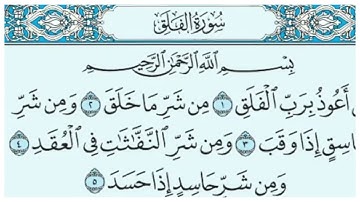 سُورَةُ الفَلَقِ
بِسْمِ اللَّهِ الرَّحْمَٰنِ الرَّحِيمِ
أَعُوذُ بِرَبِّ الْفَلَقِ ١ مِن شَرِّ مَا خَلَقَ ٢ وَمِن شَرِّ
اسِقٍ إِذَا وَقَبَ ٣ وَمِن شَرِّ النَّفَّاثَاتِ فِي الْعُقَدِ ٤
وَمِن شَرِّ حَاسِدٍ إِذَا حَسَدَ ٥